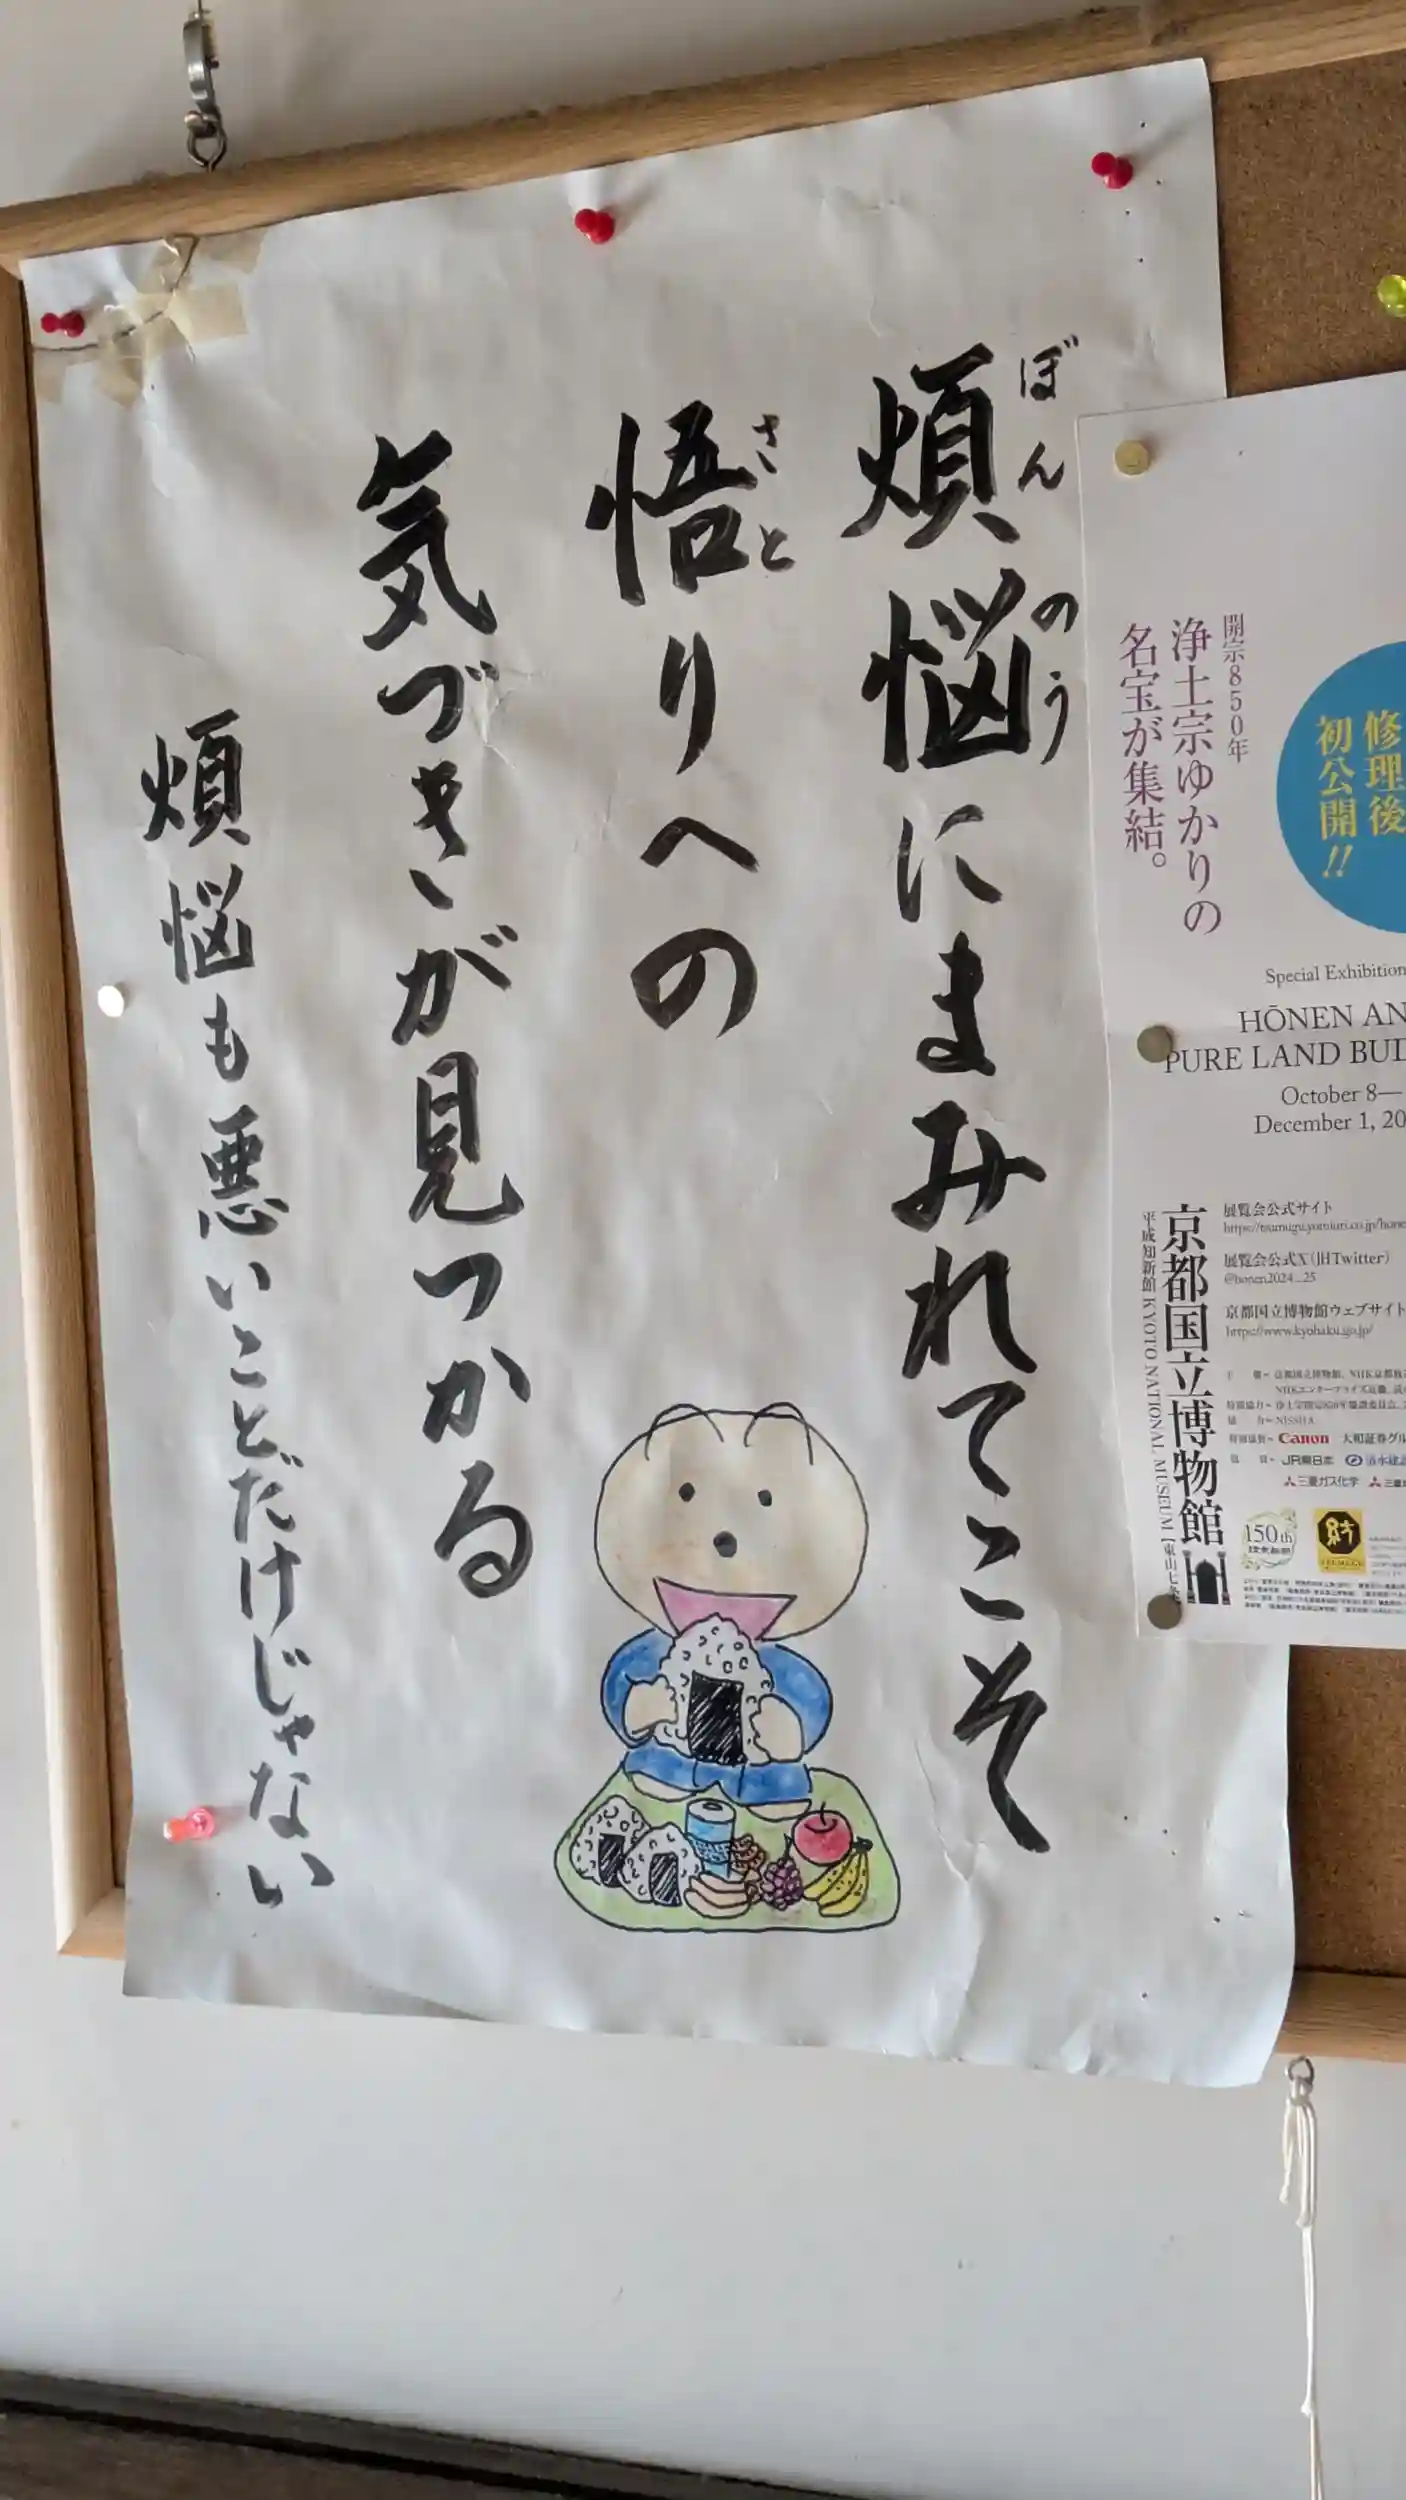 煩悩にまみれてこそ
ぼんのう
悟りへの
さと
気づきが見つかる
煩悩も悪いことだけじゃない
開宗850年
浄土宗ゆかりの
名宝が集結。
修理後
初公開!!
Special Exhibition
HŌNEN AN
PURE LAND BUD
October 8—
December 1, 20
京都国立博物館
平成知新館 KYOTO NATIONAL MUSEUM
展覧会公式サイト
展覧会公式X(旧Twitter)
@honen2024_25
京都国立博物館ウェブサイト
https://www.kyohaku.go.jp/
Canon
JR東日本
三菱ガス化学
150th